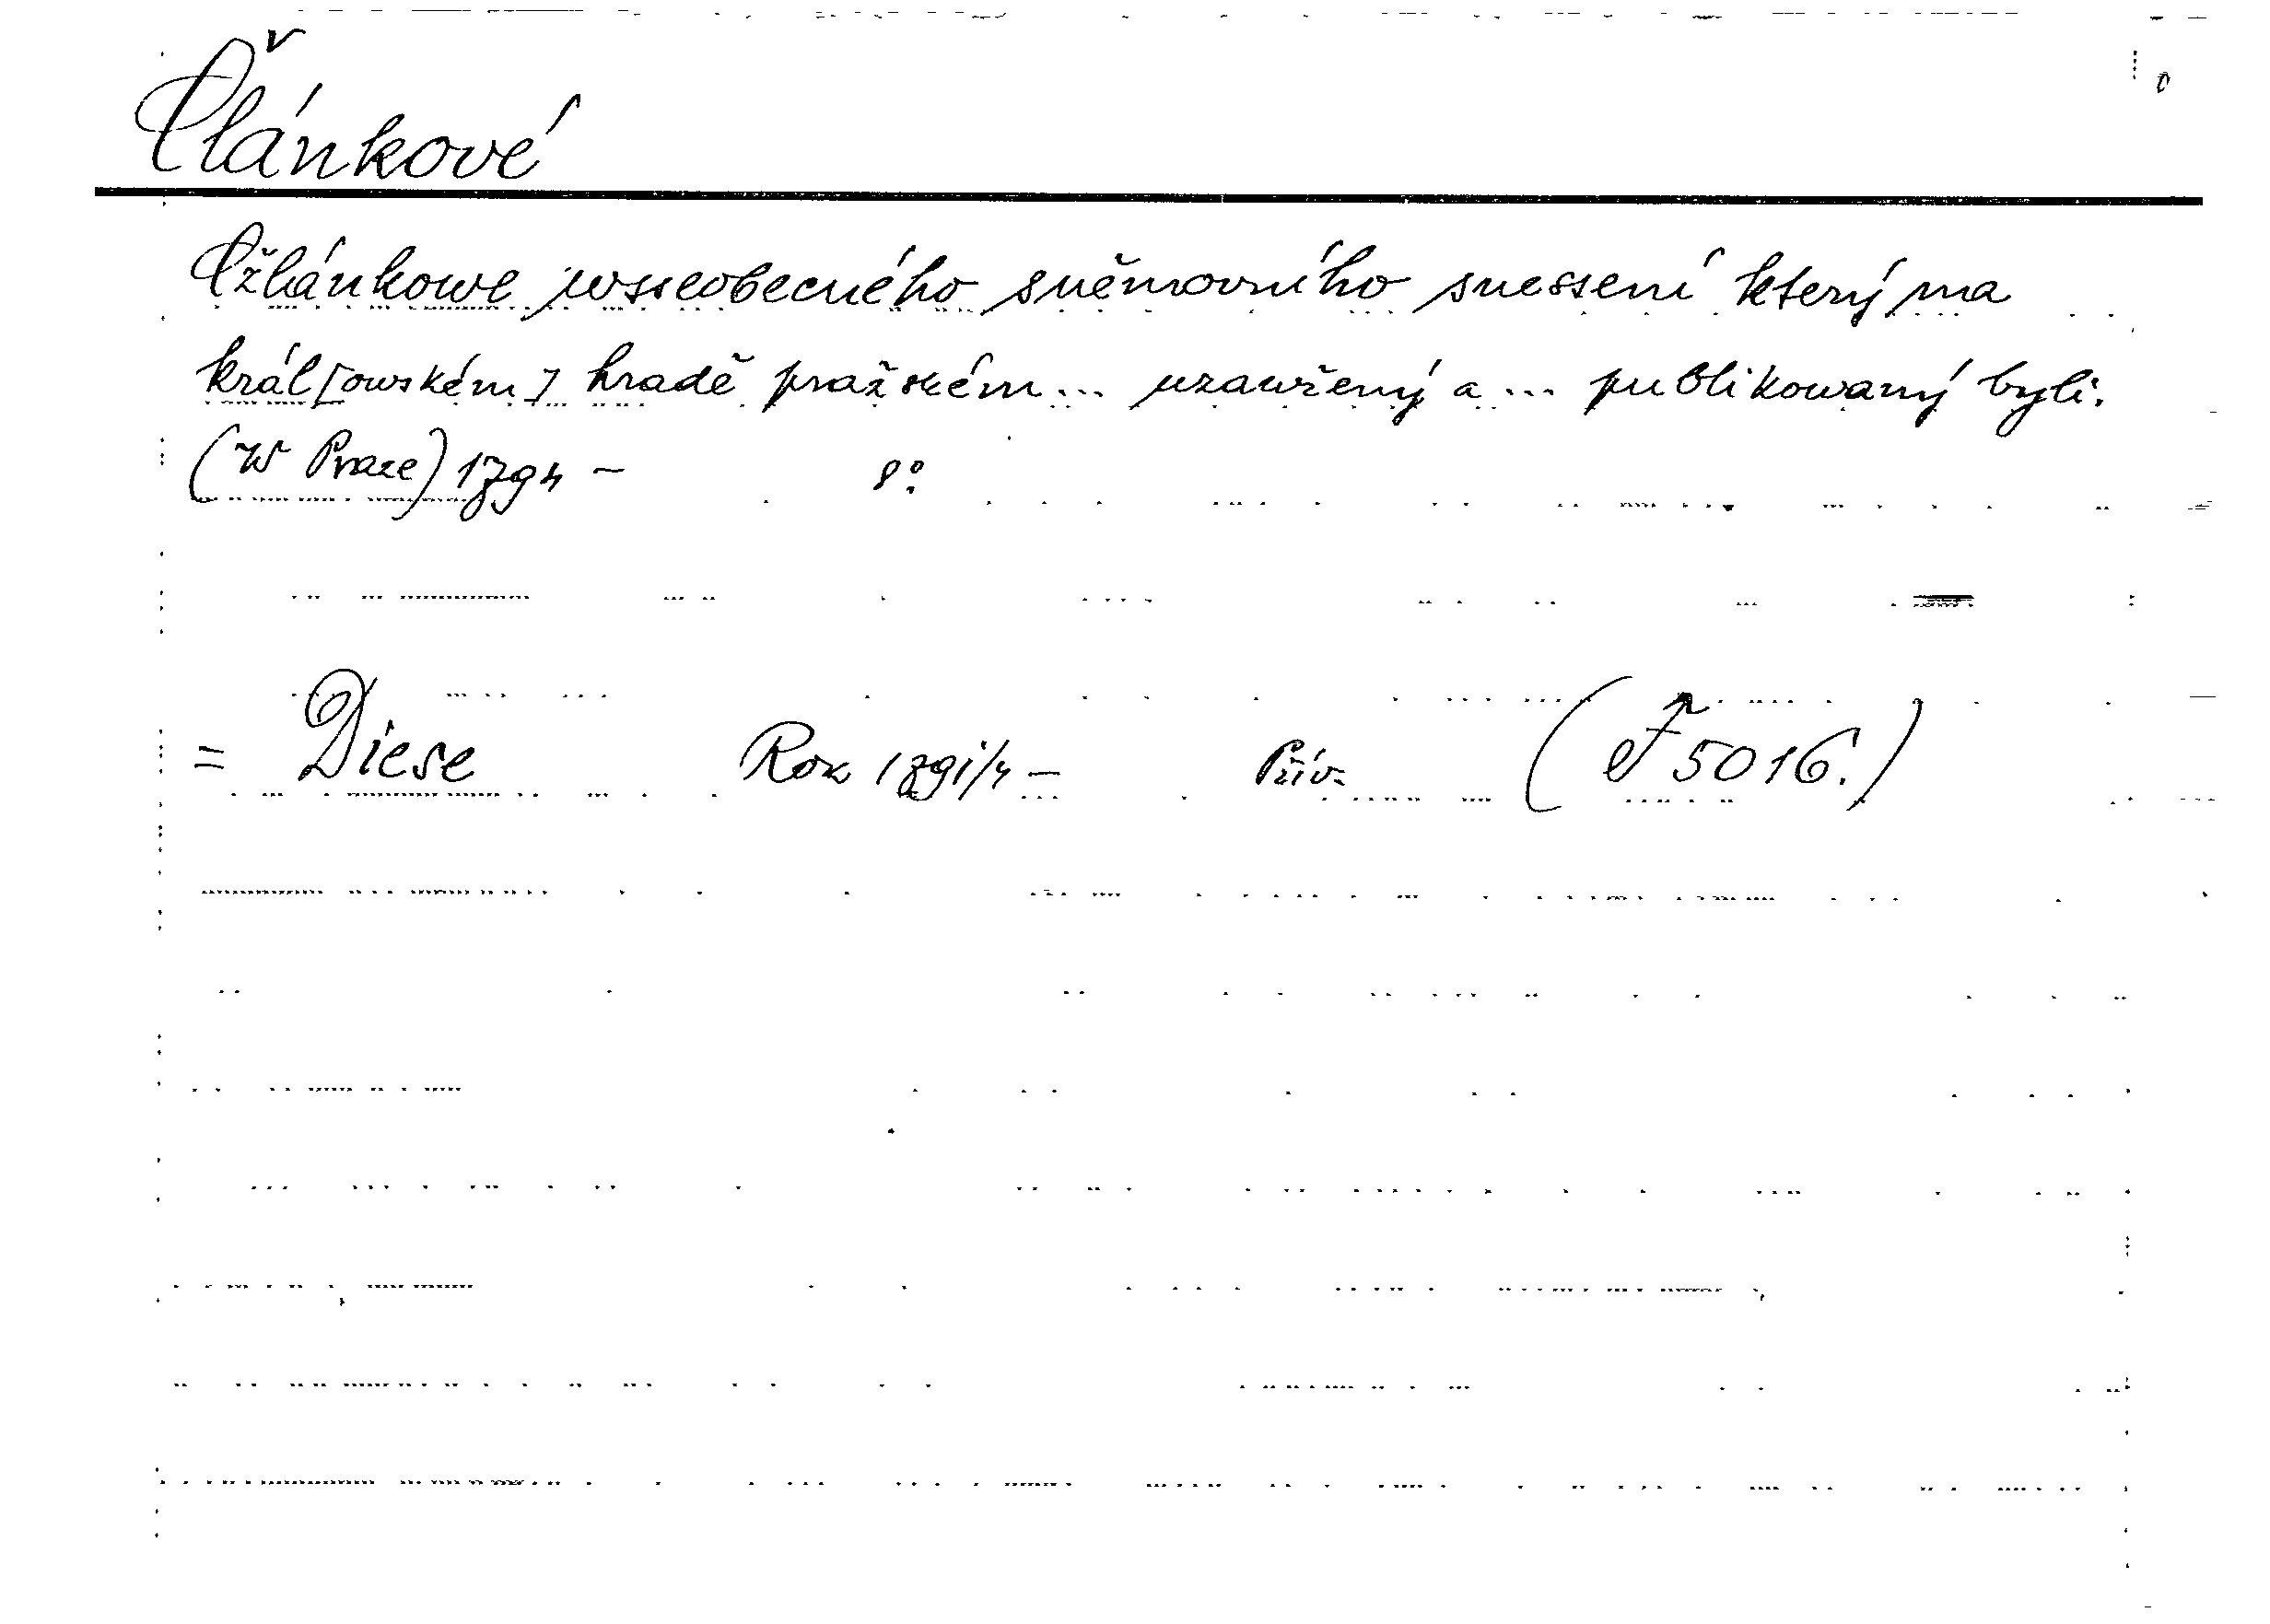 Článkové
Cžlánkowe wsseobecného sněmovního snessení který na
král[owském] hradě pražském... uzawřený a ... publikowaný byli.
(W Praze) 1794 – 8°.
= Diese Rok 1791/4 – Přív. (F 5016.)